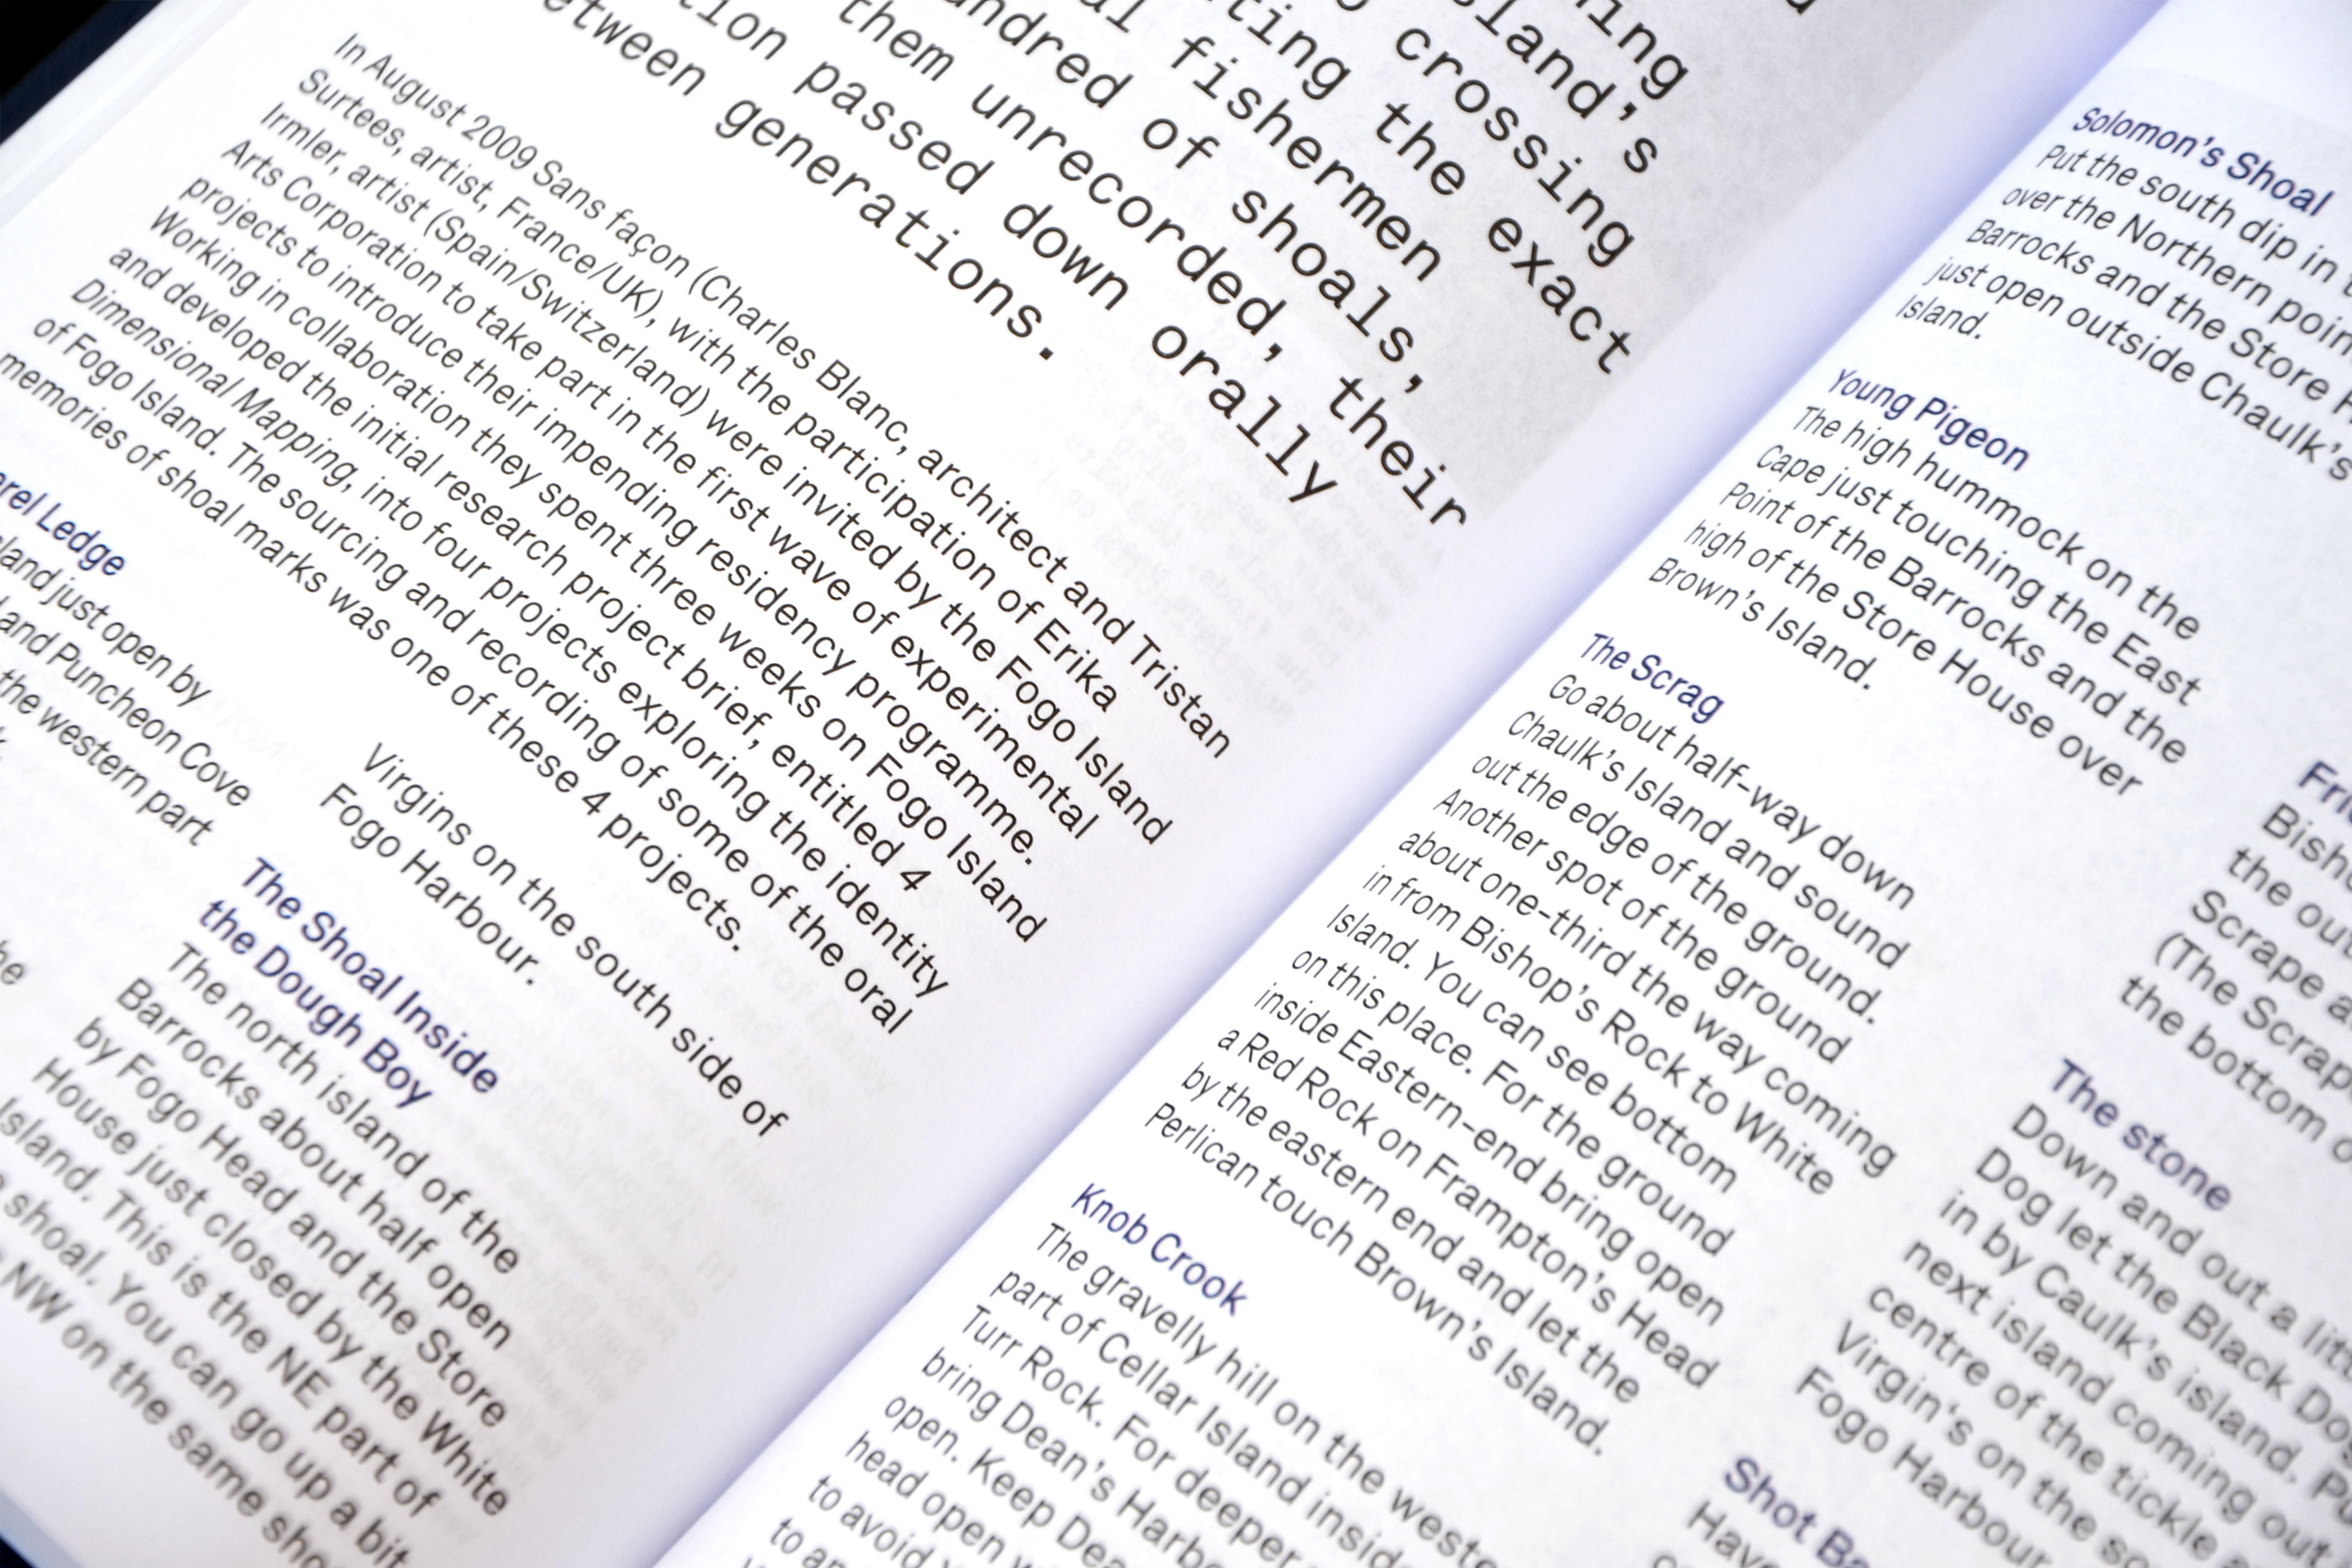 ning
sland's
crossing
ting the exact
al fishermen
ndred of shoals,
them unrecorded, their
tion passed down orally
etween generations.
In August 2009 Sans façon (Charles Blanc, architect and Tristan
Surtees, artist, France/UK), with the participation of Erika
Irmler, artist (Spain/Switzerland) were invited by the Fogo Island
Arts Corporation to take part in the first wave of experimental
projects to introduce their impending residency programme.
Working in collaboration they spent three weeks on Fogo Island
and developed the initial research project brief, entitled 4
Dimensional Mapping, into four projects exploring the identity
of Fogo Island. The sourcing and recording of some of the oral
memories of shoal marks was one of these 4 projects.
rel Ledge
land just open by
and Puncheon Cove
the western part
he
Virgins on the south side of
Fogo Harbour.
The Shoal Inside
the Dough Boy
The north island of the
Barrocks about half open
by Fogo Head and the Store
House just closed by the White
Island. This is the NE part of
shoal. You can go up a bit
NW on the same sho
Solomon's Shoal
Put the south dip in
over the Northern poin
Barrocks and the Store
just open outside Chaulk's
Island.
Young Pigeon
The high hummock on the
Cape just touching the East
Point of the Barrocks and the
high of the Store House over
Brown's Island.
The Scrag
Go about half-way down
Chaulk's Island and sound
out the edge of the ground.
Another spot of the ground
about one-third the way coming
in from Bishop's Rock to White
Island. You can see bottom
on this place. For the ground
inside Eastern-end bring open
a Red Rock on Frampton's Head
by the eastern end and let the
Perlican touch Brown's Island.
Knob Crook
The gravelly hill on the weste
part of Cellar Island insid
Turr Rock. For deeper
bring Dean's Harbo
open. Keep Dea
head open w
to avoid
to
Fri
Bish
the out
Scrape a
(The Scrap
the bottom o
The stone
Down and out a litt
Dog let the Black Dog
in by Caulk's island. Pu
next island coming out
centre of the tickle
Virgin's on the so
Fogo Harbour
Shot Ba
Have